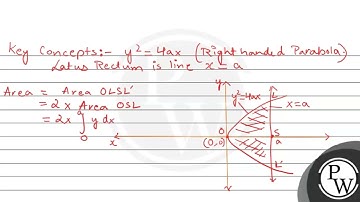 Key Concepts:- y²=4ax (Right handed Parabola)
Latus Rectum is line x=a
Area = Area OLSL'
= 2x Area OSL
= 2x ∫ y dx
0
y
y²=4ax
L
x=a
x
O
(0,0)
S
a
L'
PW